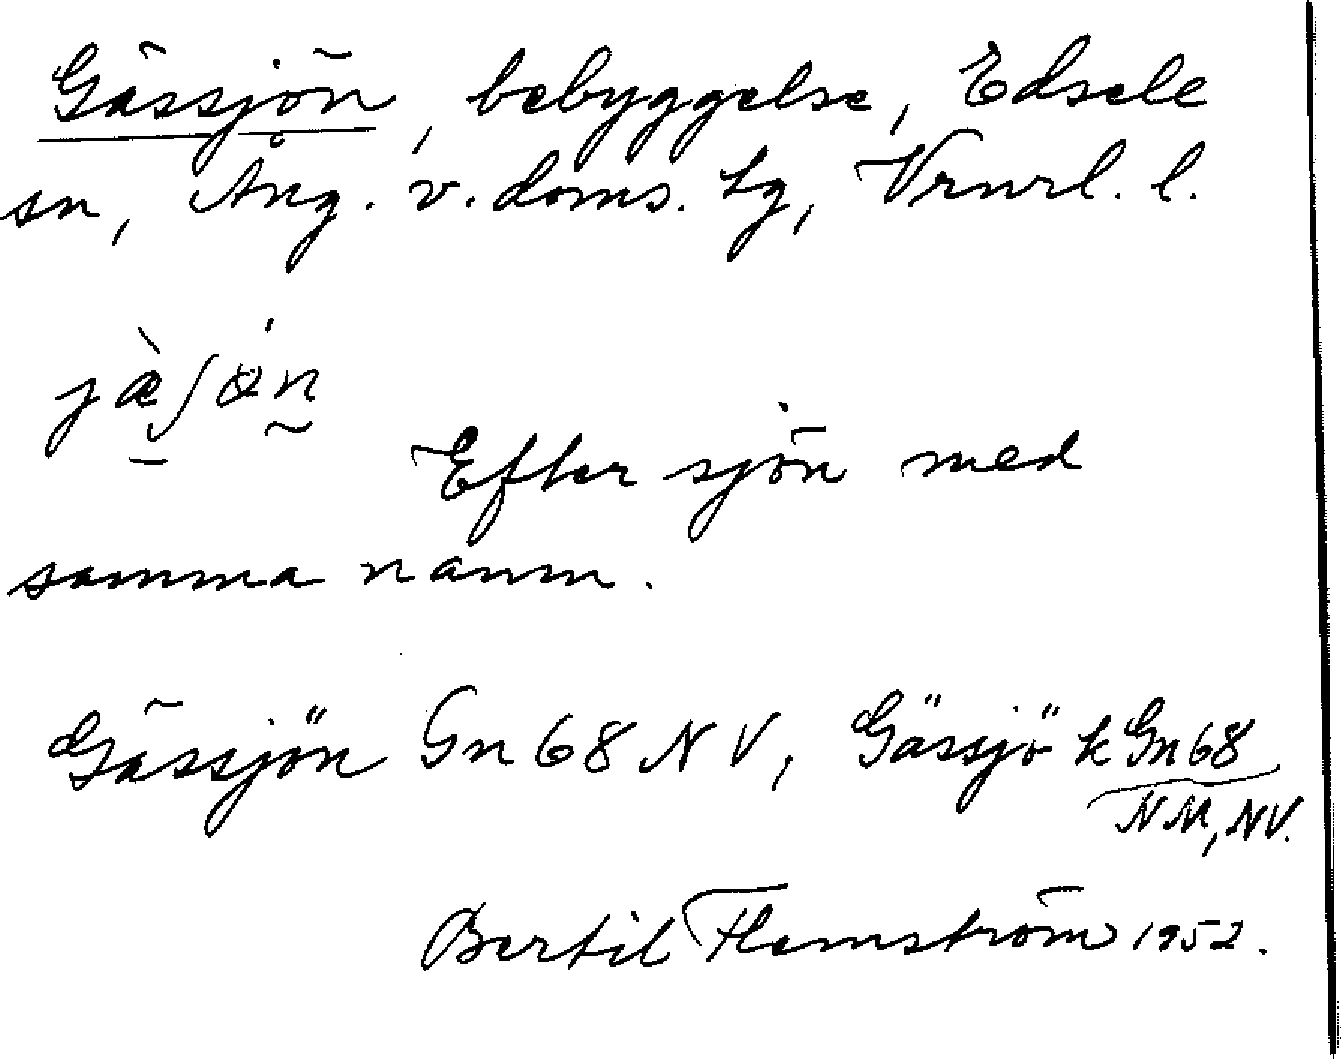 Gässjön, bebyggelse, Edsele
sn, Ång. v. doms. tg, Vrnrl. l.
jæ̀ʃøn
Efter sjön med
samma namn.
Gässjön Gn 68 NV, Gässjö k Gn 68
NM, NV.
Bertil Flemström 1952.